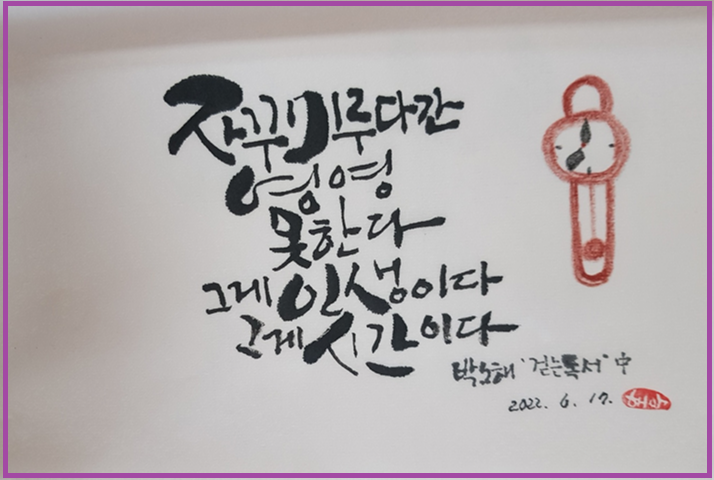 자꾸 미루다간
영영
못한다
그게 인생이다
그게 시간이다
박노해 '걷는 독서' 中
2022. 6. 17.